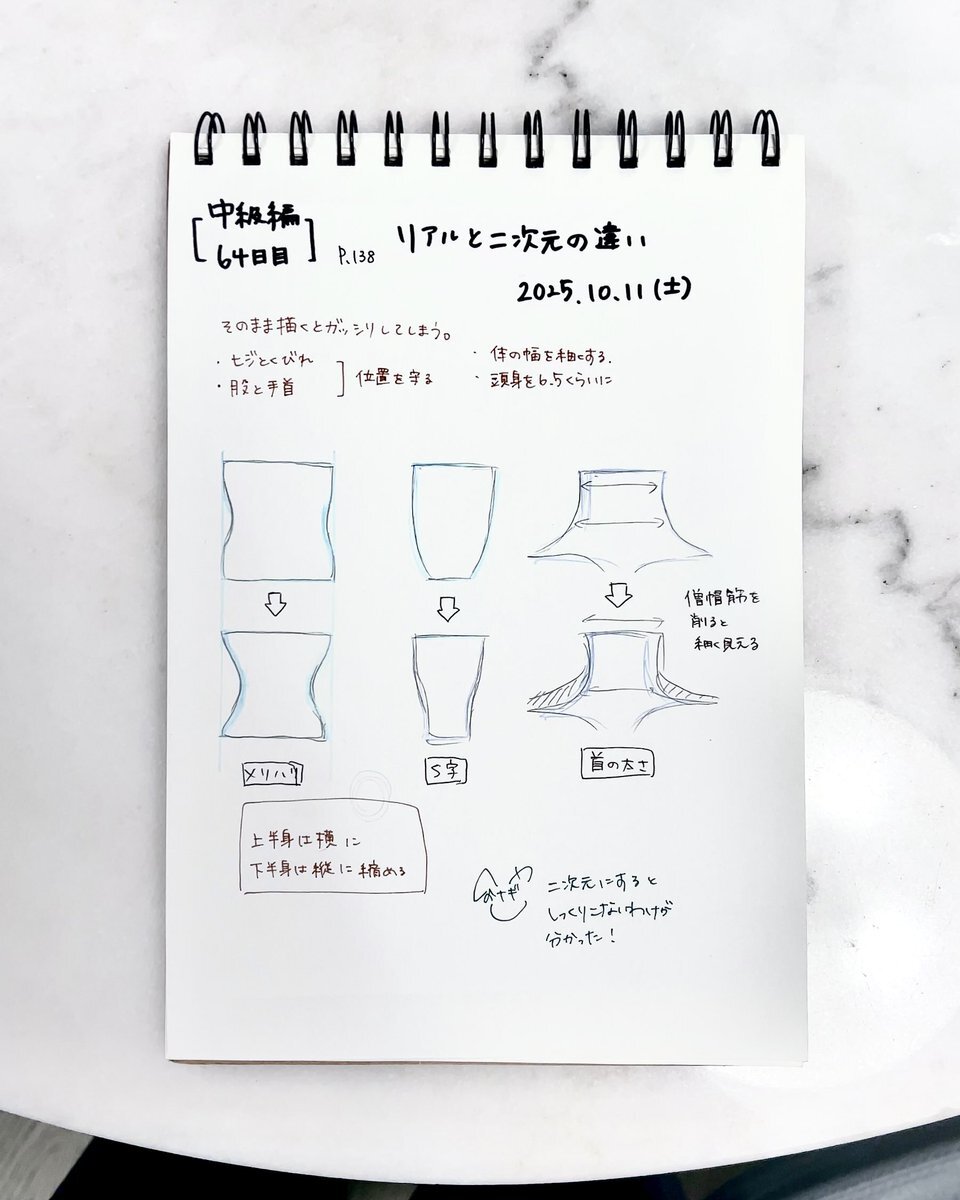 中級編
64日目
P.138
リアルと二次元の違い
2025.10.11(土)
そのまま描くとガッシリしてしまう。
・ヒジとくびれ
・股と手首
位置を守る
・体の幅を細くする.
・頭身を6.5くらいに
僧帽筋を
削ると
細く見える
メリハリ
S字
首の太さ
上半身は横に
下半身は縦に縮める
二次元にすると
しっくりこないわけが
分かった!